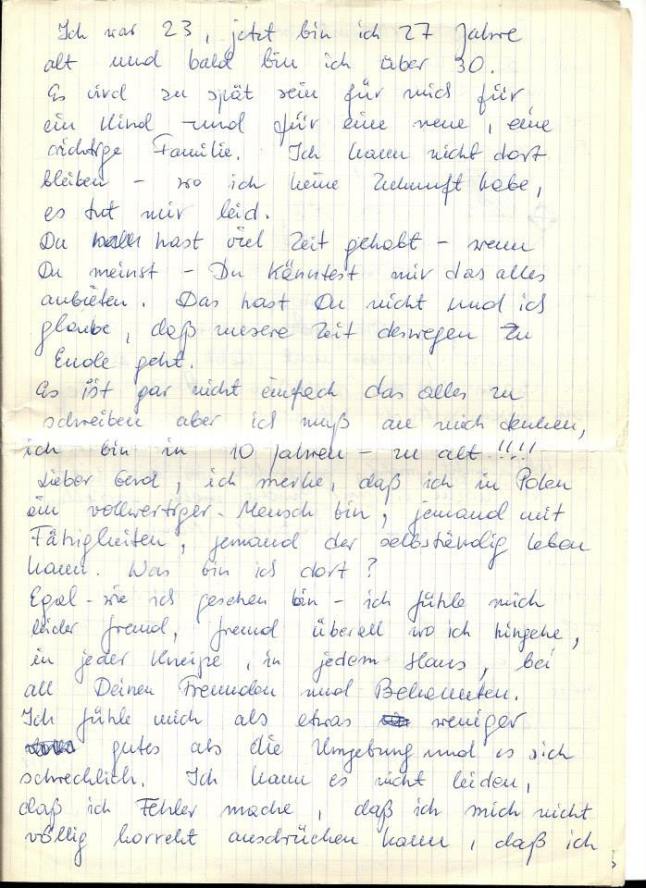 Ich war 23, jetzt bin ich 27 Jahre
alt und bald bin ich über 30.
Es wird zu spät sein für mich für
ein Kind und für eine neue, eine
richtige Familie. Ich kann nicht dort
bleiben - wo ich keine Zukunft habe,
es tut mir leid.
Du hast viel Zeit gehabt - wenn
Du meinst - Du könntest mir das alles
anbieten. Das hast Du nicht und ich
glaube, daß unsere Zeit deswegen zu
Ende geht.
Es ist gar nicht einfach das alles zu
schreiben aber ich muß an mich denken,
ich bin in 10 Jahren - zu alt!!!!
Lieber Gerd, ich merke, daß ich in Polen
ein vollwertiger Mensch bin, jemand mit
Fähigkeiten, jemand der selbständig leben
kann. Was bin ich dort?
Egal - wie ich gesehen bin - ich fühle mich
leider fremd, fremd überall wo ich hingehe,
in jeder Kneipe, in jedem Haus, bei
all Deinen Freunden und Bekannten.
Ich fühle mich als etwas weniger
gutes als die Umgebung und es ist
schrecklich. Ich kann es nicht leiden,
daß ich Fehler mache, daß ich mich nicht
völlig korrekt ausdrücken kann, daß ich